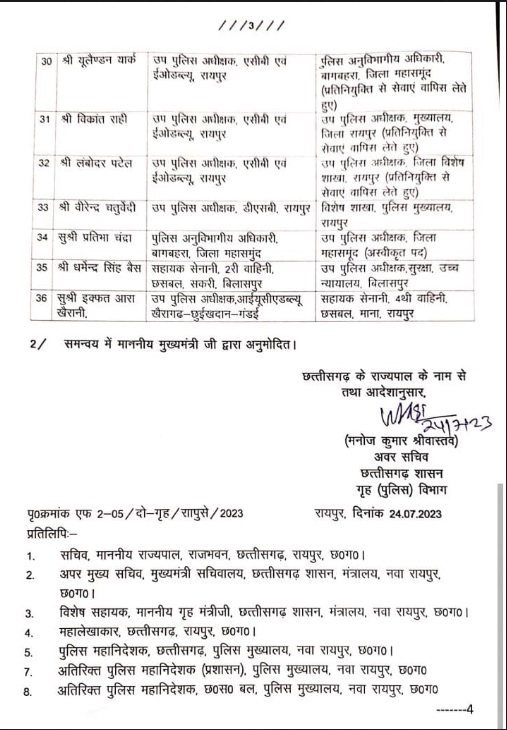 ///3///
30 श्री यूलैण्डन यार्क उप पुलिस अधीक्षक, एसीबी एवं पुलिस अनुविभागीय अधिकारी,
ईओडब्ल्यू, रायपुर बागबहरा, जिला महासमुंद
(प्रतिनियुक्ति से सेवाएं वापिस लेते
हुए)
31 श्री विकांत राही उप पुलिस अधीक्षक, एसीबी एवं उप पुलिस अधीक्षक, मुख्यालय,
ईओडब्ल्यू, रायपुर जिला रायपुर (प्रतिनियुक्ति से
सेवाएं वापिस लेते हुए)
32 श्री लंबोदर पटेल उप पुलिस अधीक्षक, एसीबी एवं उप पुलिस अधीक्षक, जिला विशेष
ईओडब्ल्यू, रायपुर शाखा, रायपुर (प्रतिनियुक्ति से
सेवाएं वापिस लेते हुए)
33 श्री वीरेन्द्र चतुर्वेदी उप पुलिस अधीक्षक, डीएसबी, रायपुर विशेष शाखा, पुलिस मुख्यालय,
रायपुर
34 सुश्री प्रतिभा चंद्रा पुलिस अनुविभागीय अधिकारी, उप पुलिस अधीक्षक, जिला
बागबहरा, जिला महासमुंद महासमूंद (अस्वीकृत पद)
35 श्री धर्मेन्द सिंह बैस सहायक सेनानी, 2री वाहिनी, उप पुलिस अधीक्षक,सुरक्षा, उच्च
छसबल, सकरी, बिलासपुर न्यायालय, बिलासपुर
36 सुश्री इफ्फत आरा उप पुलिस अधीक्षक,आईयूसीएडब्ल्यू सहायक सेनानी, 4थी वाहिनी,
खैरानी, खैरागढ-छुईखदान-गंडई छसबल, माना, रायपुर
2/ समन्वय में माननीय मुख्यमंत्री जी द्वारा अनुमोदित।
छत्तीसगढ़ के राज्यपाल के नाम से
तथा आदेशानुसार,
24/7/23
(मनोज कुमार श्रीवास्तव)
अवर सचिव
छत्तीसगढ़ शासन
गृह (पुलिस) विभाग
पृ0क्रमांक एफ 2-05/दो-गृह/रापुसे/2023 रायपुर, दिनांक 24.07.2023
प्रतिलिपिः-
1. सचिव, माननीय राज्यपाल, राजभवन, छत्तीसगढ़, रायपुर, छ0ग0।
2. अपर मुख्य सचिव, मुख्यमंत्री सचिवालय, छत्तीसगढ़ शासन, मंत्रालय, नवा रायपुर,
छ0ग0।
3. विशेष सहायक, माननीय गृह मंत्रीजी, छत्तीसगढ़ शासन, मंत्रालय, नवा रायपुर, छ0ग0।
4. महालेखाकार, छत्तीसगढ़, रायपुर, छ0ग0।
5. पुलिस महानिदेशक, छत्तीसगढ़, पुलिस मुख्यालय, नवा रायपुर, छ0ग0।
7. अतिरिक्त पुलिस महानिदेशक (प्रशासन), पुलिस मुख्यालय, नवा रायपुर, छ0ग0
8. अतिरिक्त पुलिस महानिदेशक, छ0स0 बल, पुलिस मुख्यालय, नवा रायपुर, छ0ग0
-------4